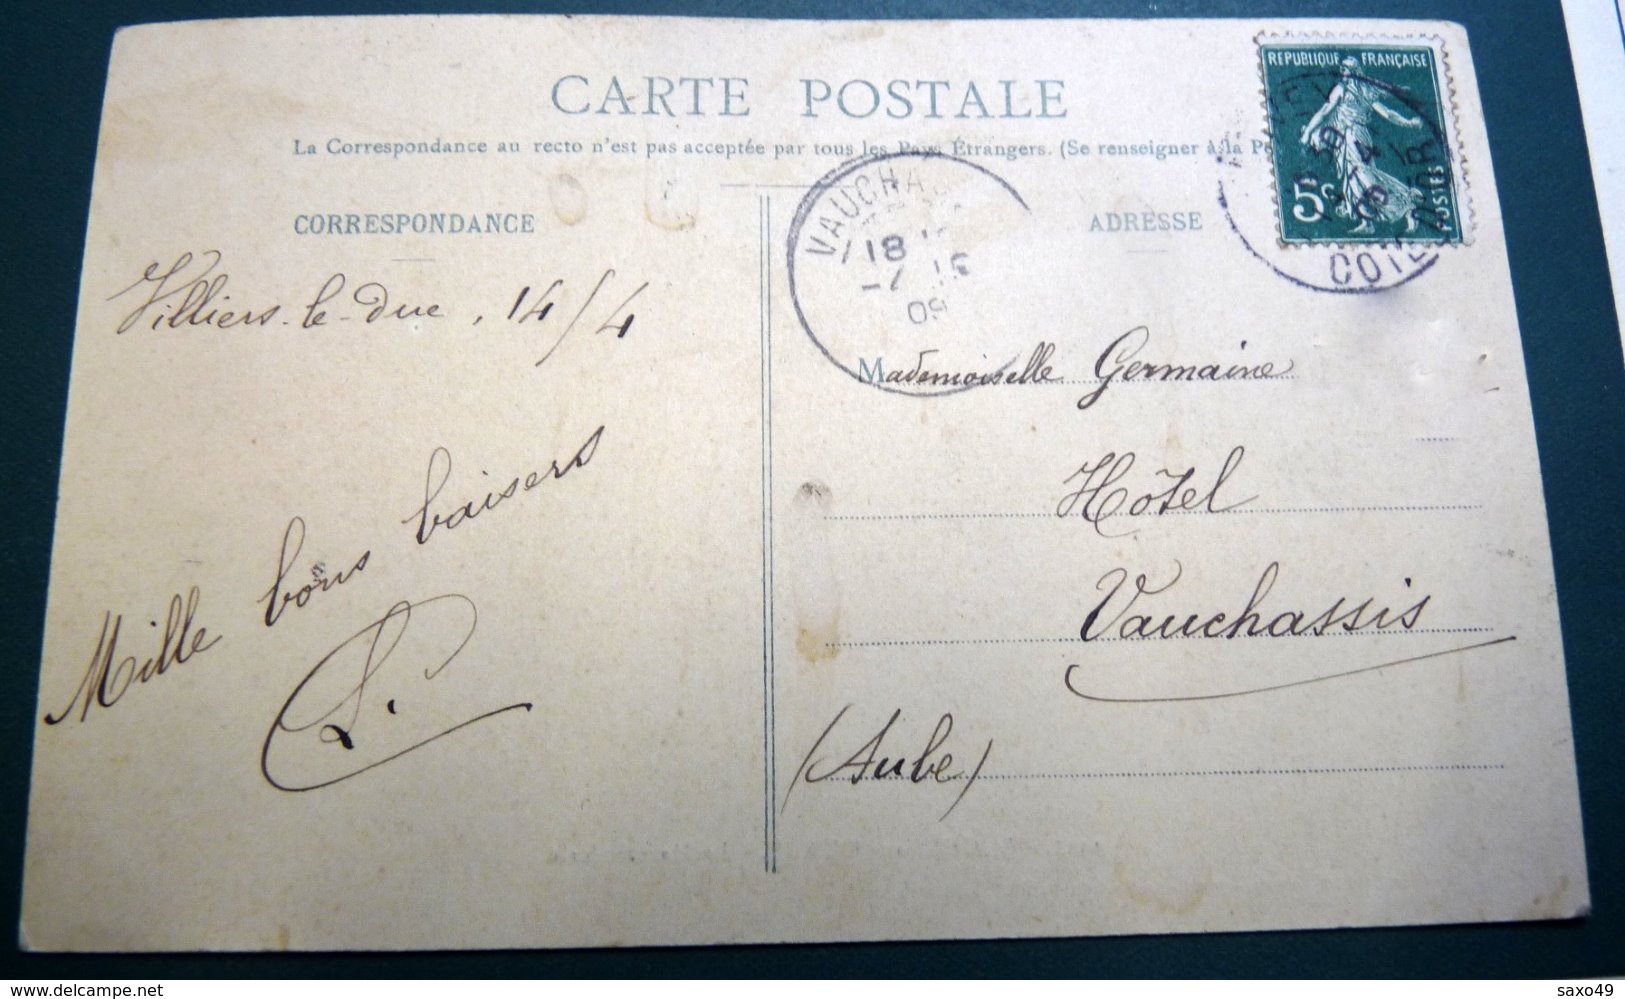 CARTE POSTALE
La Correspondance au recto n'est pas acceptée par tous les Pays Étrangers. (Se renseigner à la
CORRESPONDANCE
ADRESSE
RÉPUBLIQUE FRANÇAISE
5c
POSTES
COTE D'OR
VAUCHA
18
09
Villiers-le-Duc, 14/4
Mille bons baisers
L.
Mademoiselle Germaine
Hôtel
Vauchassis
(Aube)
www.delcampe.net
saxo49